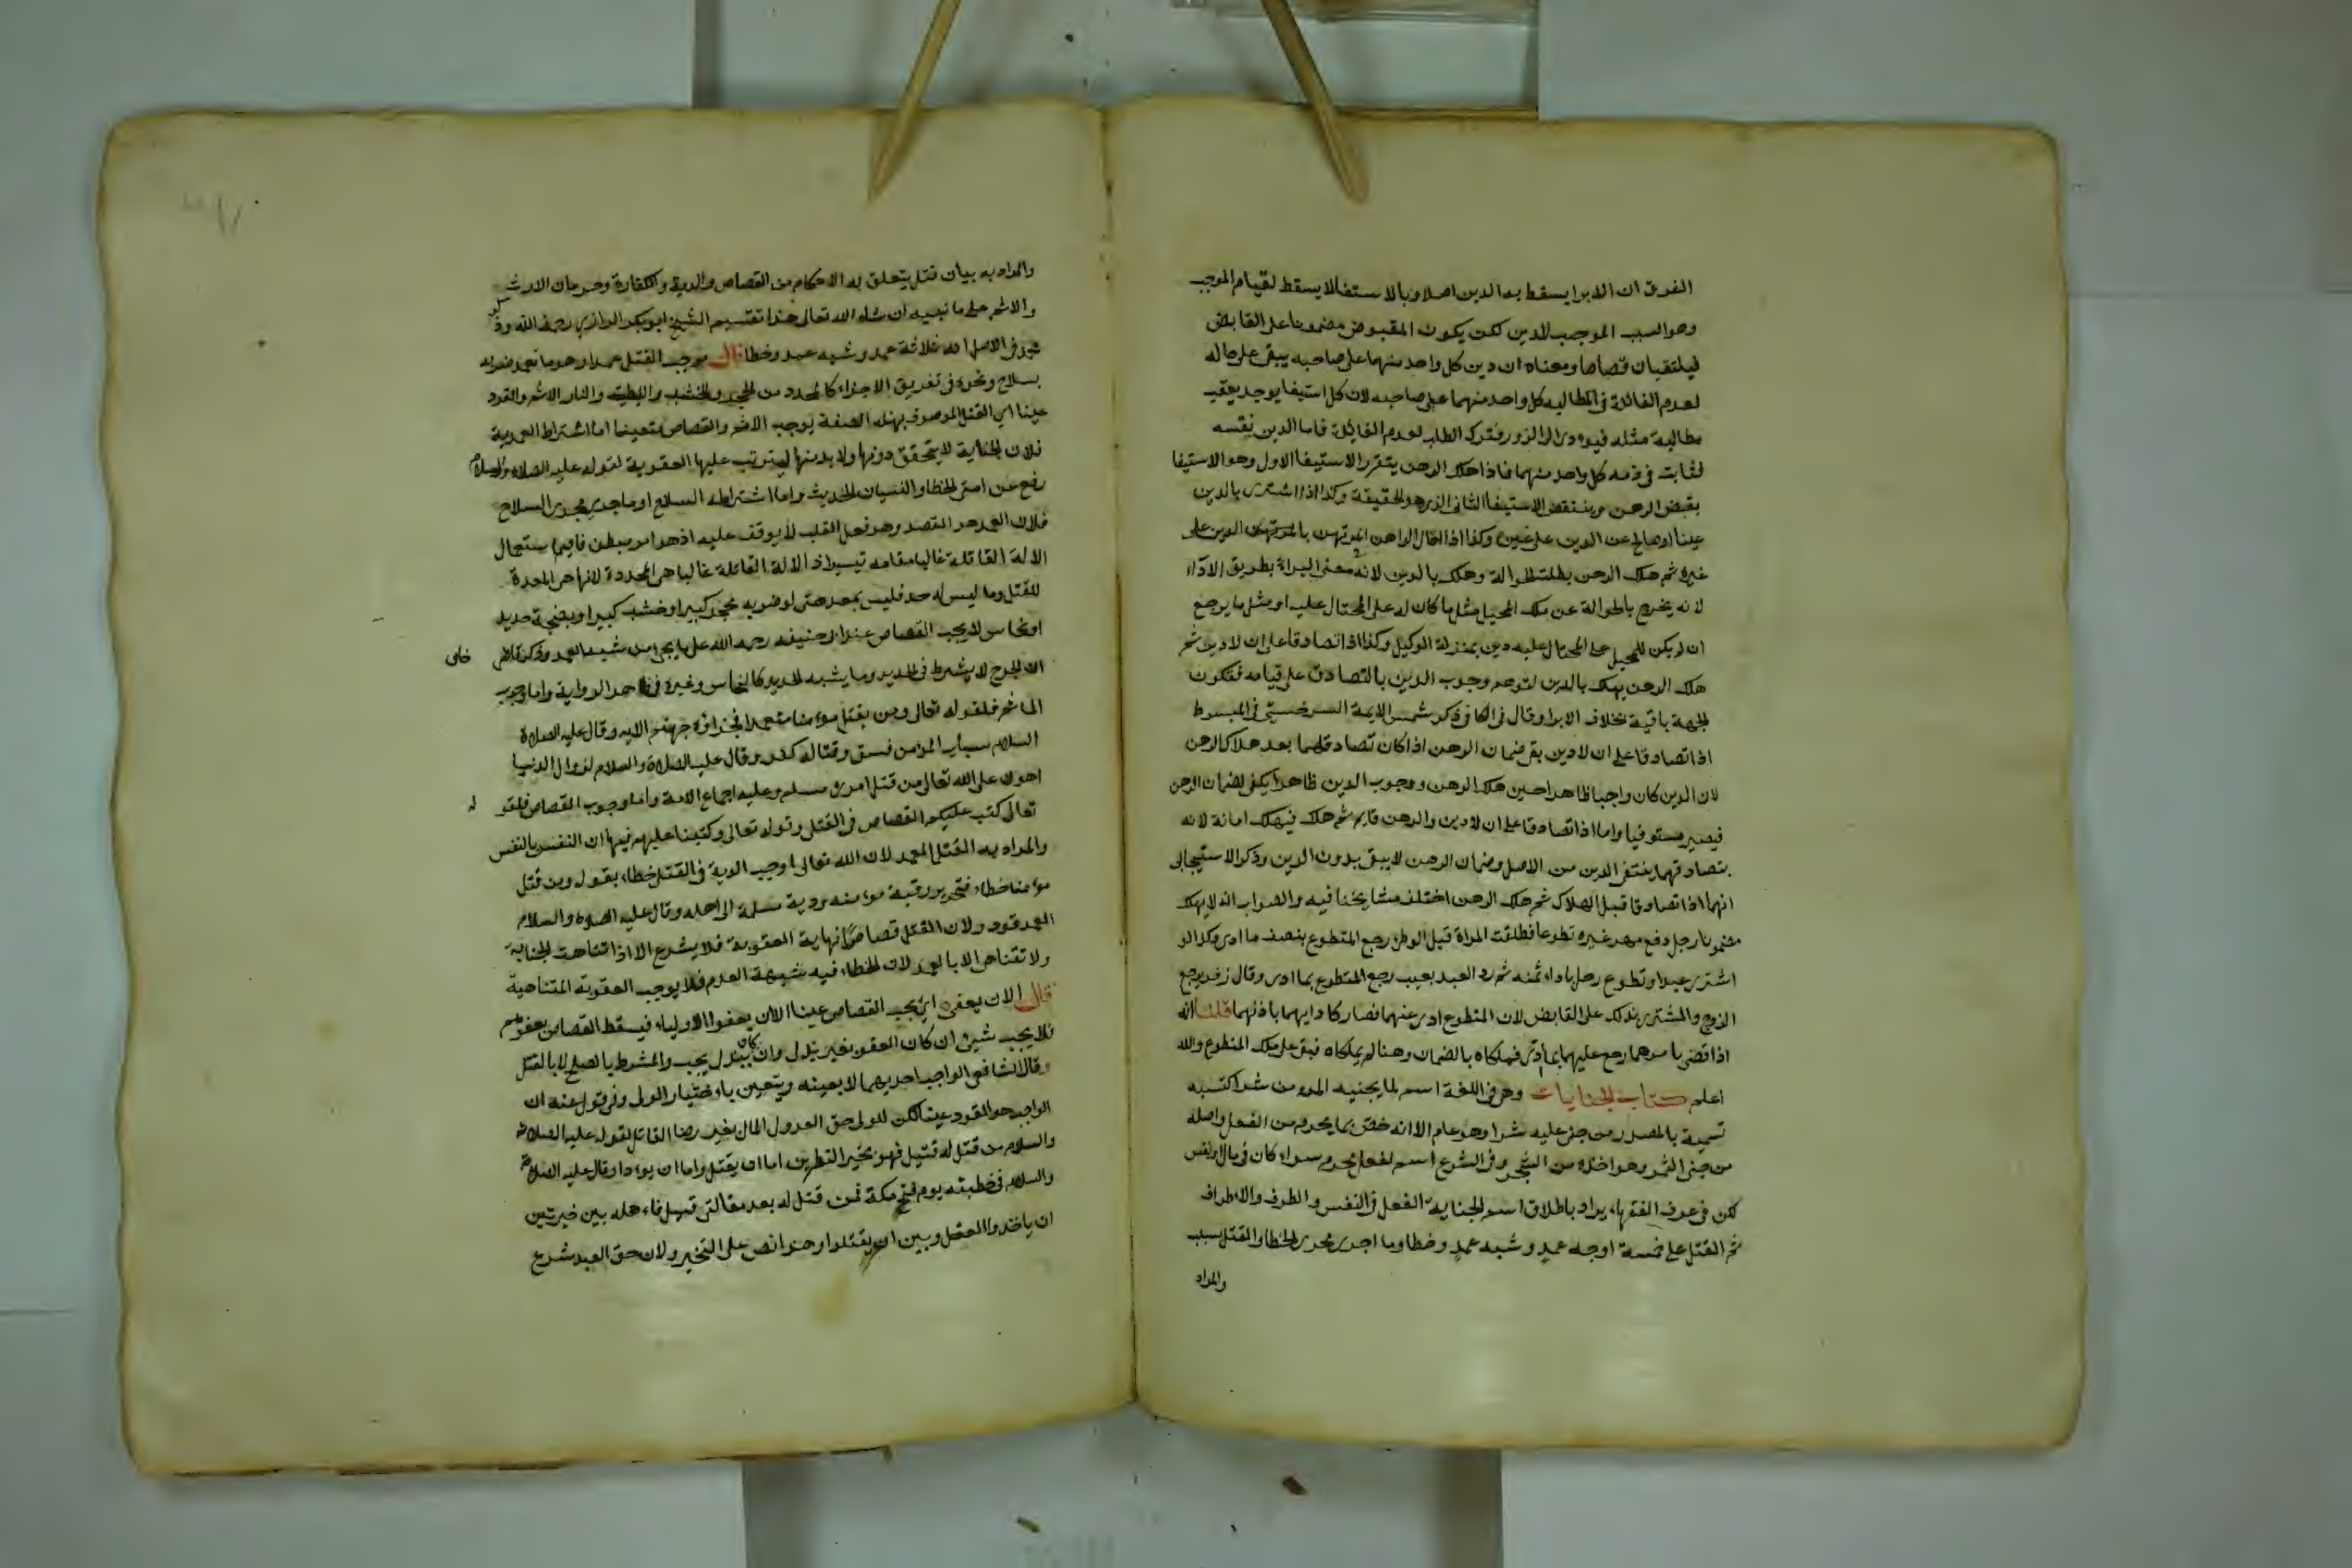 الفرق ان الابرا يسقط به الدين اصلا وبالاستفا لا يسقط لقيام الموجب
وهو السبب الموجب للدين لكن يكون المقبوض مضمونا على القابض
فيلتقيان قصاصا ومعناه ان دين كل واحد منهما على صاحبه يبقى على حاله
لعدم الفائدة في المطالبه كل واحد منهما على صاحبه لان كل استيفا يوجد يعقب
مطالبة مثله فيودى الى الدور فترك الطلب لعدم الفائدة فاما الدين نفسه
لثابت في ذمه كل واحد منهما فاذا هلك الرهن يتقرر الاستيفا الاول وهو الاستيفا
بقبض الرهن وينتقض الاستيفا الثانى الذى هو الحقيقة وكذا اذا اشترى بالدين
عينا او صالح عن الدين على عين وكذا اذا احال الراهن المرتهن بالدين على
غيره ثم هلك الرهن بطلت الحوالة وهلك بالدين لانه معنى البراة بطريق الادآء
لانه يخرج بالحوالة عن ملك المحيل مثل ما كان له على المحتال عليه او مثل ما يرجع
ان لم يكن للمحيل على المحتال عليه دين بمنزلة الوكيل وكذا اذا تصادقا على ان لا دين ثم
هلك الرهن يهلك بالدين لتوهم وجوب الدين بالتصادق على قيامه فتكون
الجهة باقية بخلاف الابرا وقال فى الكافى ذكر شمس الايمة السرخسى فى المبسوط
اذا تصادقا على ان لا دين بقى ضمان الرهن اذا كان تصادقهما بعد هلاك الرهن
لان الدين كان واجبا ظاهرا حين هلك الرهن ووجوب الدين ظاهرا يكفى لضمان الرهن
فيصير مستوفيا واما اذا تصادقا على ان لا دين والرهن قايم ثم هلك فيهلك امانة لانه
بتصادقهما ينتفى الدين من الاصل وضمان الرهن لا يبقى بدون الدين وذكر الاستيجابى
انهما اذا تصادقا قبل الهلاك ثم هلك الرهن اختلف مشايخنا فيه والصواب انه لا يهلك
مضمونا رجل دفع مهر غيره تطوعا فطلقت المراة قبل الوطئ رجع المتطوع بنصف ما ادى وكذا لو
اشترى عبدا وتطوع رجل باداء ثمنه ثم رد العبد بعيب رجع المتطوع بما ادى وقال زفر يرجع
الزوج والمشترى بذلك على القابض لان المتطوع ادى عنهما فصار كادايهما باذنهما قلنا انه
اذا قضى بامرهما رجع عليهما بما ادى فملكاه بالضمان وهنا لم يملكاه فبقى على ملك المتطوع والله
اعلم كتاب الجنايات وهى فى اللغة اسم لما يجنيه المرء من شر اكتسبه
تسمية بالمصدر من جنى عليه شرا وهو عام الا انه خص بما يحرم من الفعل واصله
من جنى الثمر وهو اخذه من الشجر وفى الشرع اسم لفعل محرم سواء كان فى مال او نفس
لكن فى عرف الفقهاء يراد باطلاق اسم الجناية الفعل فى النفس والطرف والاطراف
ثم القتل على خمسة اوجه عمد وشبه عمد وخطا وما اجرى مجرى الخطا والقتل بسبب
والمراد
والمراد به بيان قتل يتعلق به الاحكام من القصاص والدية والكفارة وحرمان الارث
والاثم على ما نبينه ان شاء الله تعالى هذا تقسيم الشيخ ابو بكر الرازي رحمه الله وذكر
فى الاصل انه ثلاثة عمد وشبه عمد وخطا قال موجب القتل عمدا وهو ما تعمد ضربه
بسلاح ونحوه فى تفريق الاجزاء كالمحدد من الحجر والخشب والليطة والنار الاثم والقود
عينا اي القتل الموصوف بهذه الصفة يوجب الاثم والقصاص متعينا اما اشتراط العمدية
فلان الجناية لا يتحقق دونها ولا بد منها ليترتب عليها العقوبة لقوله عليه الصلاة والسلام
رفع عن امتى الخطا والنسيان الحديث واما اشتراطه السلاح او ما جرى مجرى السلاح
فلان العمد هو القصد وهو فعل القلب لا يوقف عليه اذ هو امر مبطن فاقيم استعمال
الالة القاتلة غالبا مقامه تيسيرا اذ الالة القاتلة غالبا هى المحددة لانها هى المعدة
للقتل وما ليس له حد فليس بمعد حتى لو ضربه بحجر كبير او خشب كبير او بصنجة حديد
او نحاس لا يجب القصاص عند ابى حنيفه رحمه الله على ما يجى من شبه العمد وذكر قاضى خان
ان الجرح لا يشترط فى الحديد وما يشبه الحديد كالنحاس وغيره فى ظاهر الرواية واما وجوب
الماثم فلقوله تعالى ومن يقتل مومنا متعمدا فجزاؤه جهنم الايه وقال عليه الصلاة
السلام سباب المؤمن فسق وقتاله كفر وقال عليه الصلاة والسلام لزوال الدنيا
اهون على الله تعالى من قتل امرئ مسلم وعليه اجماع الامة واما وجوب القصاص فلقوله
تعالى كتب عليكم القصاص فى القتلى وقوله تعالى وكتبنا عليهم فيها ان النفس بالنفس
والمراد به القتل العمد لان الله تعالى اوجب الدية فى القتل خطاء بقوله ومن قتل
مؤمنا خطاء فتحرير رقبة مؤمنه ودية مسلمة الى اهله وقال عليه الصلاه والسلام
العمد قود ولان القتل قصاصا نهاية العقوبة فلا يشرع الا اذا تناهت الجناية
ولا تتناهى الا بالعمد لان الخطاء فيه شبهة العدم فلا يوجب العقوبة المتناهية
قال الا ان يعفى اي يجب القصاص عينا الا ان يعفوا الاولياء فيسقط القصاص بعفوهم
فلا يجب شيئ ان كان العفو بغير بدل وان كان ببدل يجب والمشروط بالصلح لا بالقتل
وقال الشافعى الواجب احديهما لا بعينه ويتعين باختيار الولى وفى قول عنه ان
الواجب هو القود عينا لكن للولى حق العدول المال بغير رضا القاتل لقوله عليه الصلاة
والسلام من قتل له قتيل فهو بخير النظرين اما ان يقتل واما ان يودا وقال عليه الصلاة
والسلام فى خطبته يوم فتح مكة فمن قتل له بعد مقالتى قتيل فاهله بين خيرتين
ان ياخذوا العقل وبين ان يقتلوا وهذا نص على التخير ولان حق العبد شرع